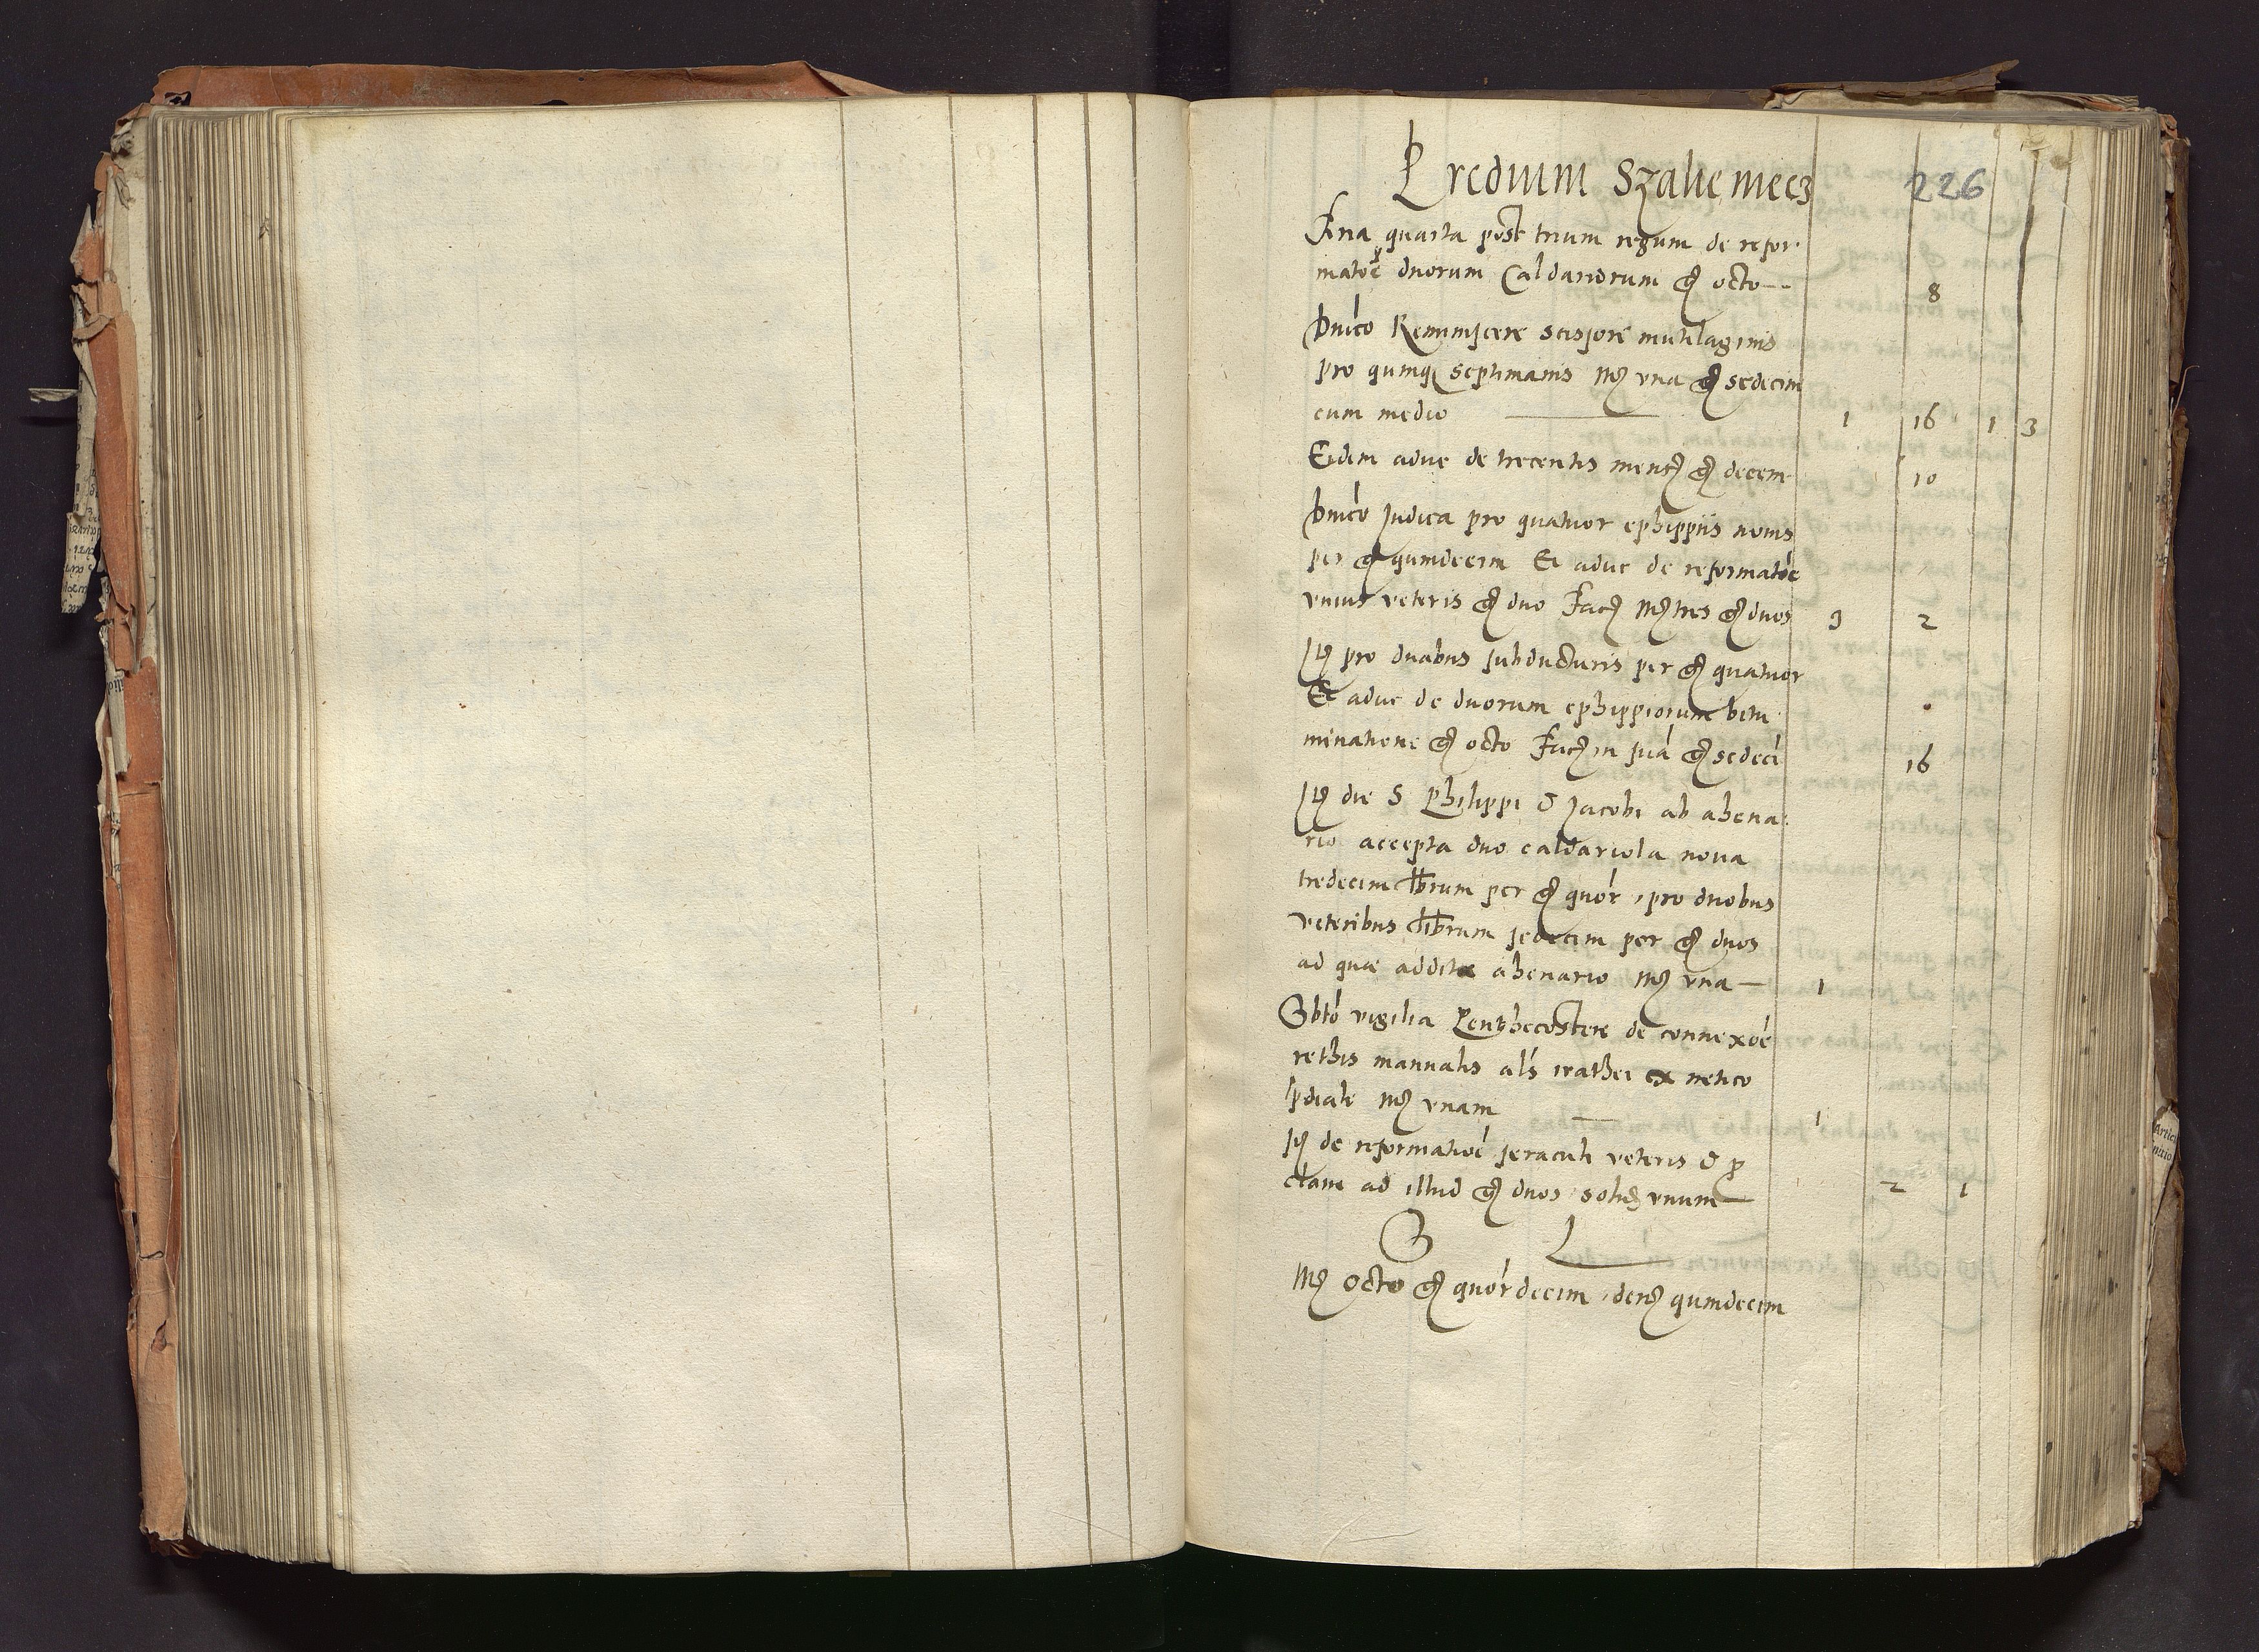 Predium Szaluemecz 226
Feria quarta post trium regum de refor-
matoe duorum Caldariorum gr octo — 8
Dnico Reminiscere scissore mutilaginis
pro quinq septimanis mr vna gr sedecim
cum medio — 1 16 1 3
Eidem aduc de trecentis gr decem 10
Dnico Judica pro quatuor ephippiis nouis
per gr quindecim Et aduc de reformatoe
vnius veteris gr duo Fac mr tres gr duos 3 2
Ite pro duabus subducturis per gr quatuor
Et aduc de duorum ephippiorum bitu
minatione gr octo Fac in suma gr sedeci 16
Ite die S Philippi & Jacobi ab ahena-
rio accepta duo caldariola noua
tredecim librum per gr quor, pro duobus
veteribus librum sedecim per gr duos
ad quae addita ahenario mr vna — 1
Sbto vigilia Penthecostere de connexoe
rethis manualis als ex netico
pdiali mr vnam — 1
Ite de reformatioe seraculi veteris & p
clam ad illud gr duos solid vnum — 2 1
S L
Mr Octo gr quordecim, denr quindecim